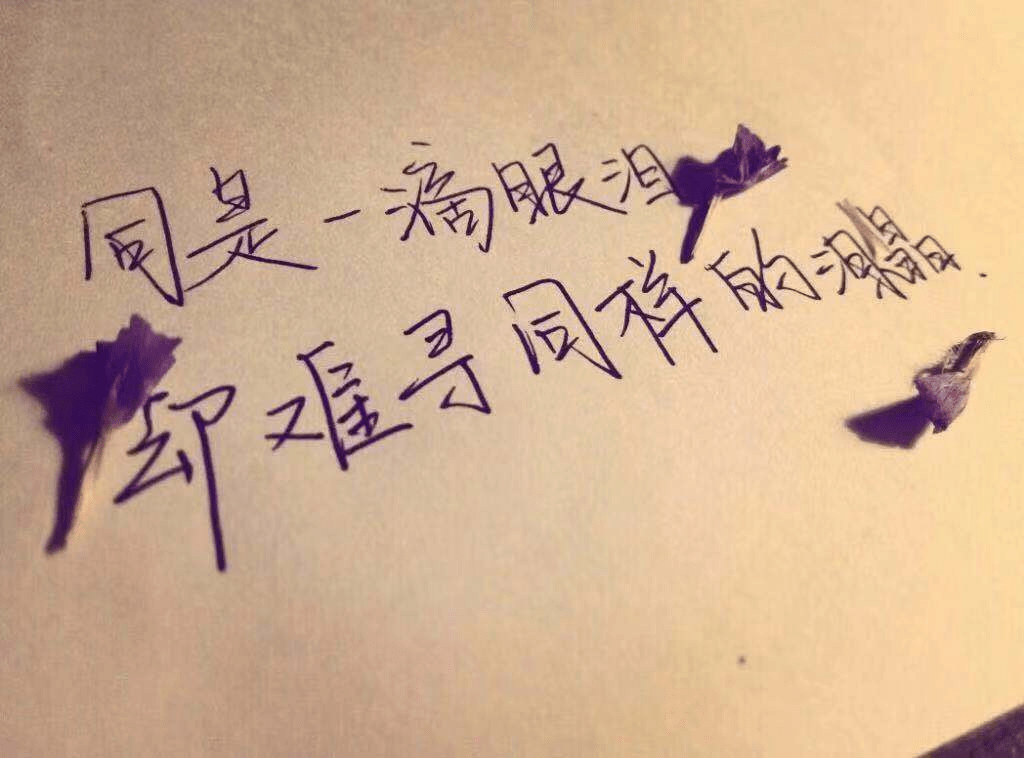 同是一滴眼泪
却难寻同样的